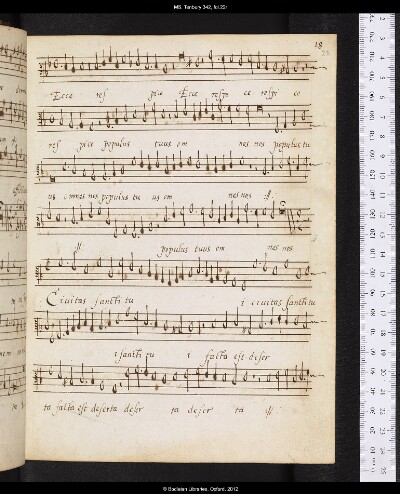 MS. Tenbury 342, fol.23r
18
23
Ecce res pice Ecce respi ce respi ce
res pice populus tuus om nes nos populus tu
us omnes nos populus tu us om nes nos :||:
:||: populus tuus om nes nos
Civitas sancti tu i civitas sancti tu
i sancti tu i facta est deser
ta facta est deserta deser ta deser ta :||:
© Bodleian Libraries, Oxford, 2012